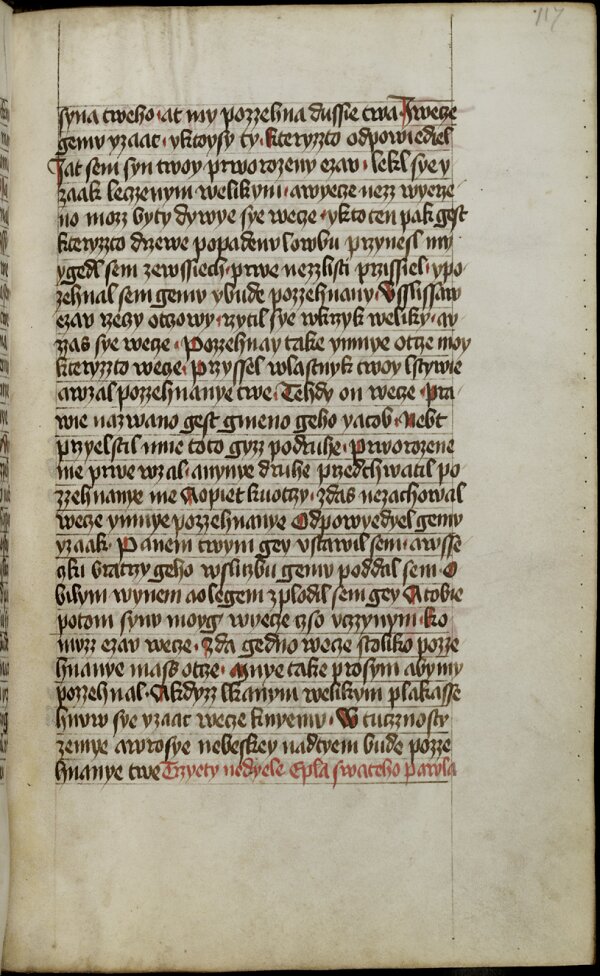 117
syna tweho · at my pozzehna dussie twa · I wecze
gemu yzaac · yktoysy ty · kteryzzto odpowiediel
Jat sem syn twoy prworozeny ezav · lekl sye y
zaak leczenym welikym · awyecze nezz wyerze
no mozz byty dywye sye wecze · ykto ten pak gest
kteryzzto drzewe popadenu lowbu przynesl my
ygedl sem zewssiech · prwe nezzlisti przissiel · ypo
zehnal sem gemu ybude pozzehnany · Usslissaw
ezav rzeczy otczowy · rzytil sye wkrzyk weliky · ay
zzas sye wecze · Pozzehnay take ymnye otcze moy
kteryzto wecze · Przyssel wlastnyk twoy lstywie
awzal pozzehnanye twe · Tehdy on wecze · pra
wie nazwano gest gmeno geho yacob · nebt
przyelstil mne toto gyzz podruhe · Prworozene
me prwe wzal · anynye druhe przedchwatil po
zzehnanye me Aopiet kuotczy · zdas nezachowal
wecze ymnye pozzehnanye Odpowyedyel gemu
yzaak · Panem twym gey ustawil sem · awsse
czku bratrzy geho wsluzbu gemu poddal sem · O
bilym wynem aolegem zplodil sem gey Atobie
potom synu moyg wyecze czso uczynym · ko
muzz ezav wecze · Zda gedno wecze stoliko pozze
hnanye mass otcze · mnye take prosym aby my
pozzehnal · Akdyzz lkanym welikym plakasse
hnuw sye yzaac wecze knyemu · W tucznosty
zemye awrosye nebeskey nadtyem bude pozze
hnanye twe Trzyety nedyele Epla swateho pawla